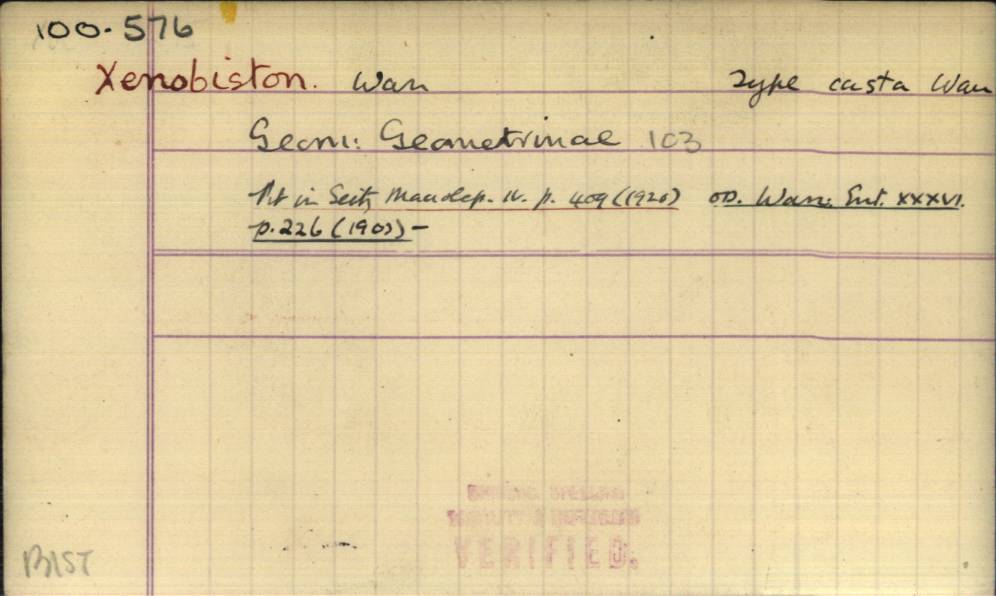 100.576
Xenobiston. Warr Type casta Warr
Geom: Geometrinae 103
Prt in Seitz Macrolep. IV. p. 409 (1920) OD. Warr. Ent. XXXVI.
p. 226 (1903) —
VERIFIED.
BIST